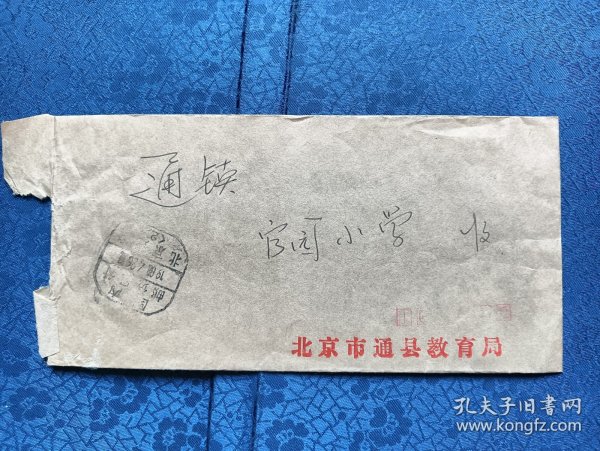 通镇
官园小学 收
北京市通县教育局
孔夫子旧书网
www.kongfz.com